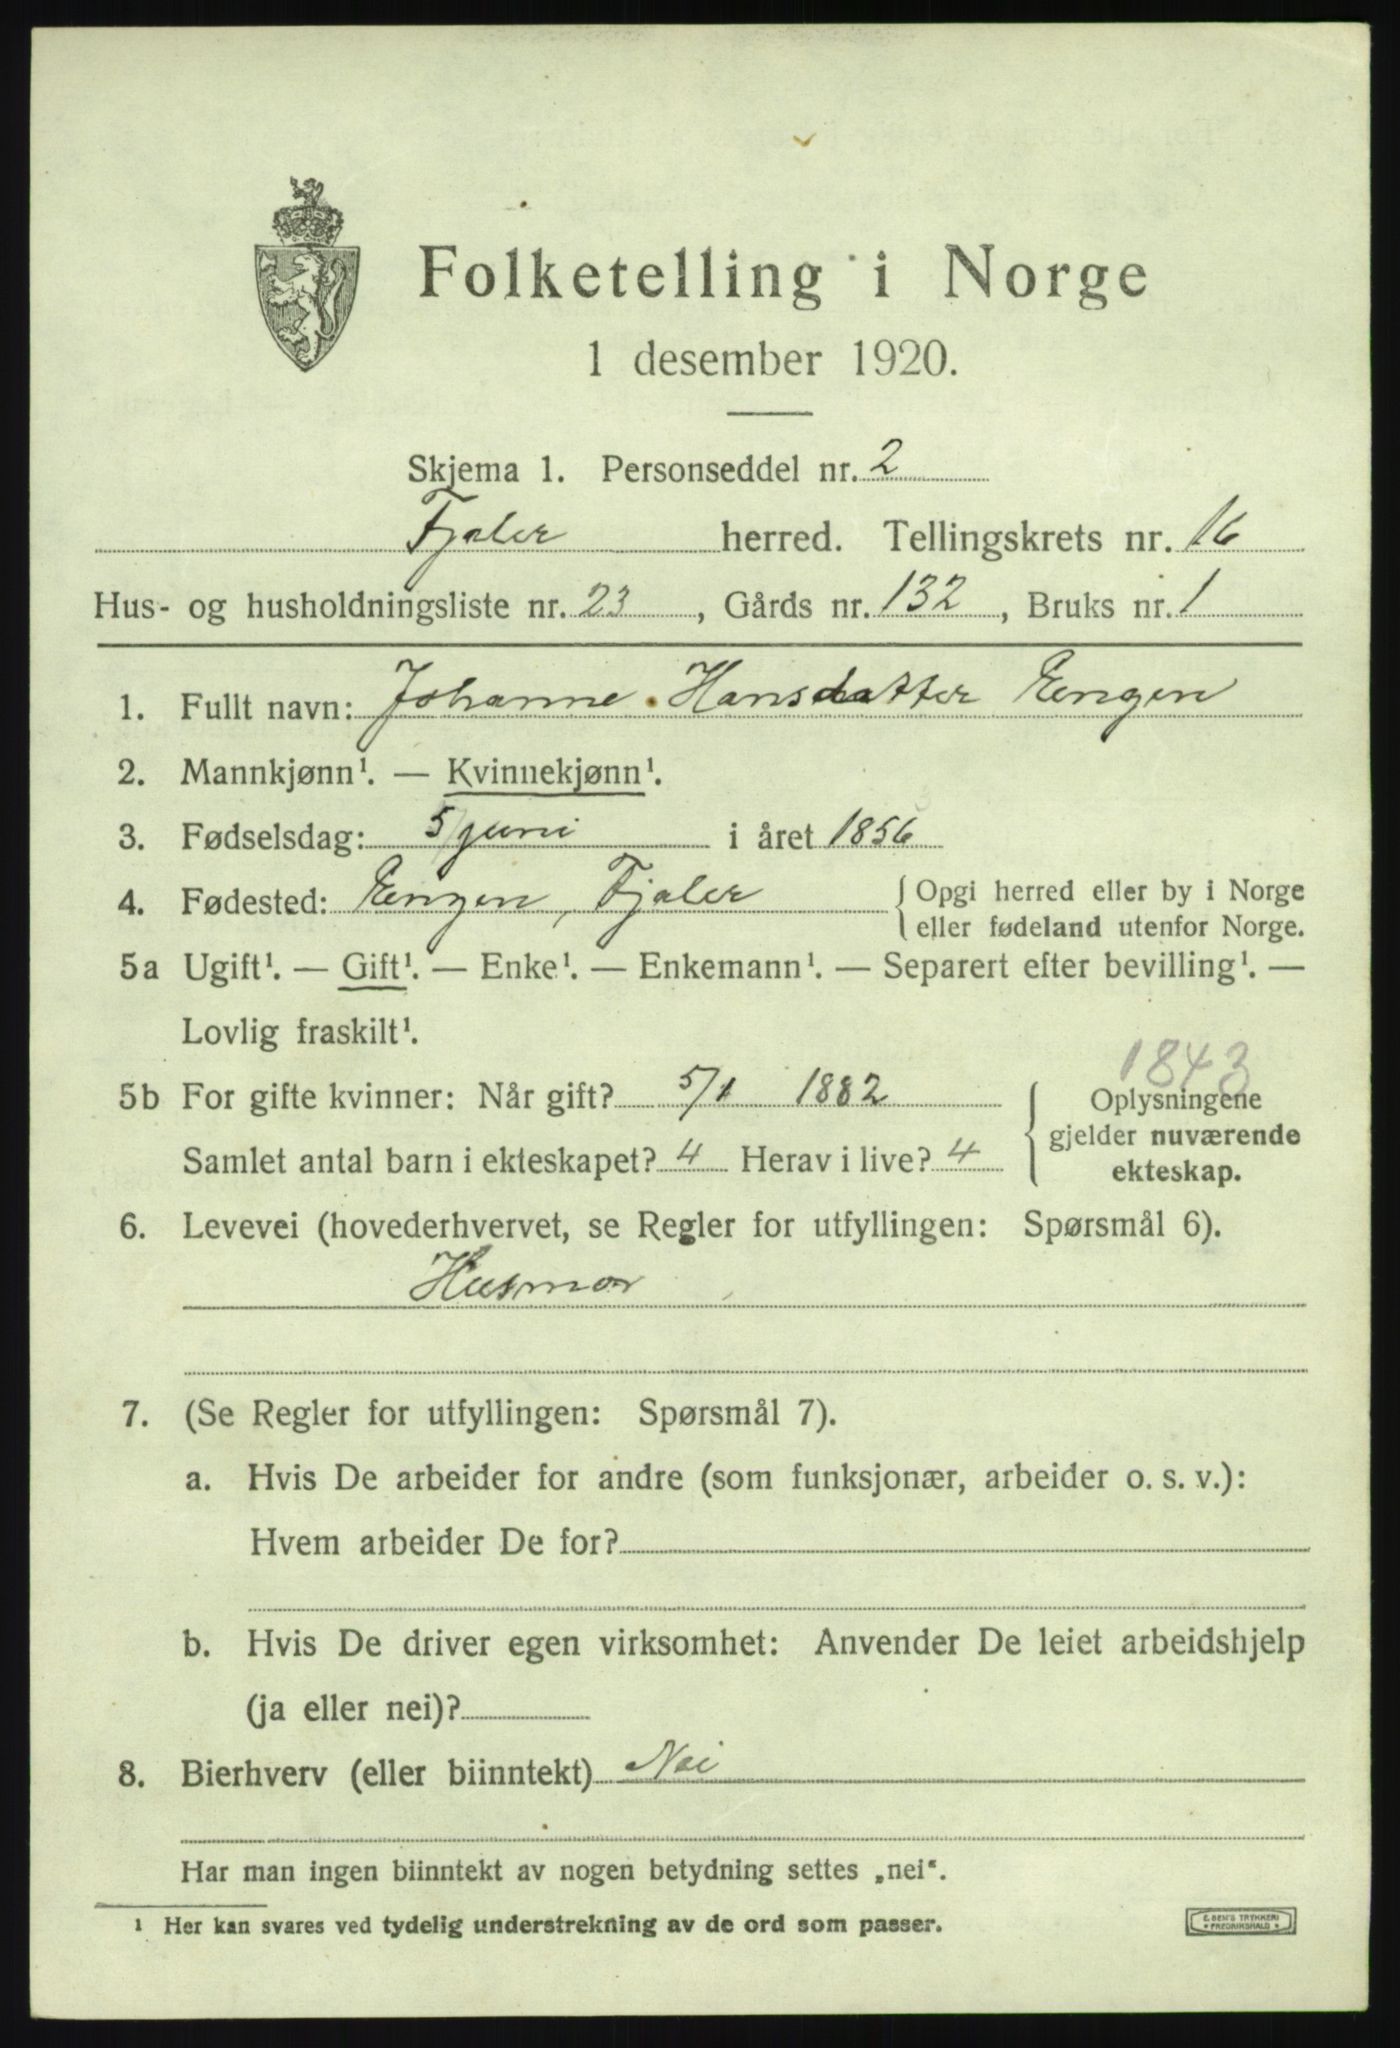 Folketelling i Norge
1 desember 1920.
Skjema 1. Personseddel nr. 2
Fjaler herred. Tellingskrets nr. 16
Hus- og husholdningsliste nr. 23, Gårds nr. 132, Bruks nr. 1
1. Fullt navn: Johanne Hansdatter Engen
2. Mannkjønn¹. — Kvinnekjønn¹.
3. Fødselsdag: 5/juni i året 1856
4. Fødested: Engen, Fjaler { Opgi herred eller by i Norge
eller fødeland utenfor Norge.
5a Ugift¹. — Gift¹. — Enke¹. — Enkemann¹. — Separert efter bevilling¹. —
Lovlig fraskilt¹.
1843
5b For gifte kvinner: Når gift? 5/1 1882 { Oplysningene
gjelder nuværende
Samlet antal barn i ekteskapet? 4 Herav i live? 4
ekteskap.
6. Levevei (hovederhvervet, se Regler for utfyllingen: Spørsmål 6).
Husmor
7. (Se Regler for utfyllingen: Spørsmål 7).
a. Hvis De arbeider for andre (som funksjonær, arbeider o. s. v.):
Hvem arbeider De for?
b. Hvis De driver egen virksomhet: Anvender De leiet arbeidshjelp
(ja eller nei)?
8. Bierhverv (eller biinntekt) Nei
Har man ingen biinntekt av nogen betydning settes „nei“.
¹ Her kan svares ved tydelig understrekning av de ord som passer.
E. SEM'S TRYKKERI
FREDRIKSHALD